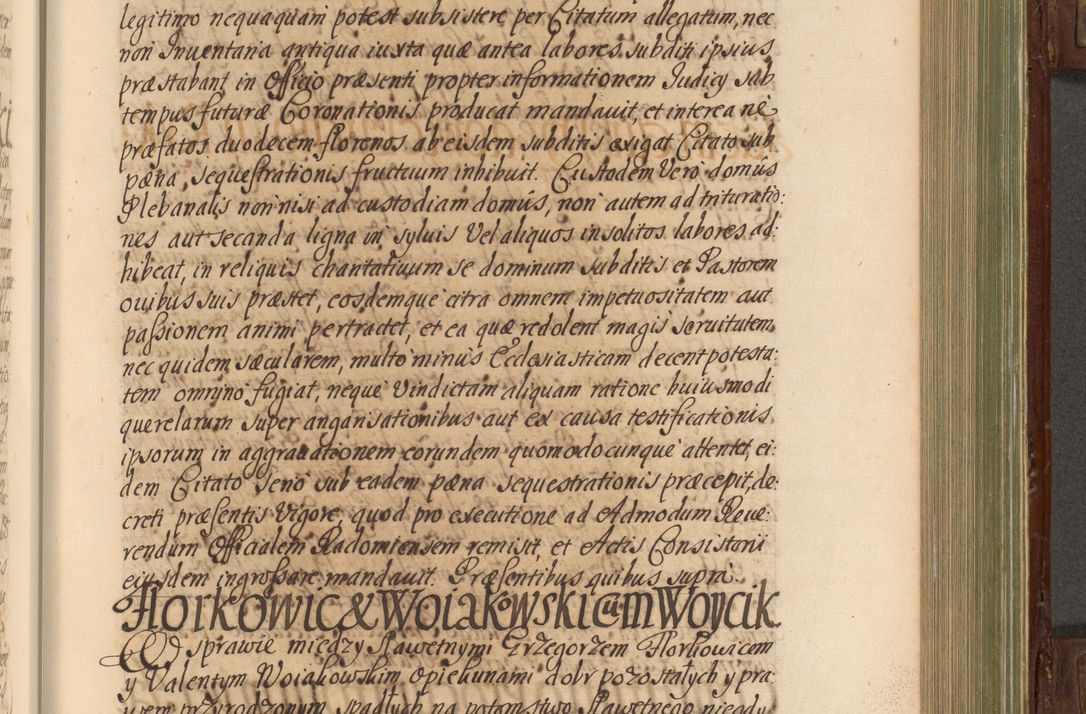 legitimo nequaquam potest subsistere per Citatum allegatum, nec
non Inventaria antiqua iuxta quæ antea labores subditi ipsius
præstabant in Officio præsenti propter informationem Iudicij sub
tempus futuræ Coronationis producat mandavit, et interea ne
præfatos duodecem florenos ab eisdem subditis exigat Citato sub
pæna sequestrationis fructuum inhibuit. Custodem Vero domús
Plebanalis non nisi ad custodiam domús, non autem ad trituratio:
nes aut secanda ligna in syluis Vel aliquos insolitos labores ad:
hibeat, in reliquis charitativum se dominum subditis et Pastorem
ovibus suis præstet, eosdemque citra omnem impetuositatem aut
passionem animi pertractet, et ea quæ redolent magis servitutem
nec quidem sæcularem, multo minus Ecclesiasticam decent potesta:
tem omnino fugiat, neque Vindictam aliquam ratione huiusmodi
querelarum super angarisationibus aut ex causa testificationis
ipsorum in aggravationem eorundem quomodocunque attentet, ei:
dem Citato serio sub eadem pæna sequestrationis præcepit, de:
creti præsentis Vigore, quod pro executione ad Admodum Reve:
rendum Officialem Radomiensem remisit, et Actis Consistorii
eiusdem ingrossare mandavit. Præsentibus quibus supra.
Florkowic & Woiakowski cum Woycik
Od sprawie między Sławetnymi Grzegorzem Florkowicem
y Valentym Woiakowskim Opiekunami dobr pozostałych y pra:
wem przyrodzonym spadłych na potomstwo Sławetnego niegdy